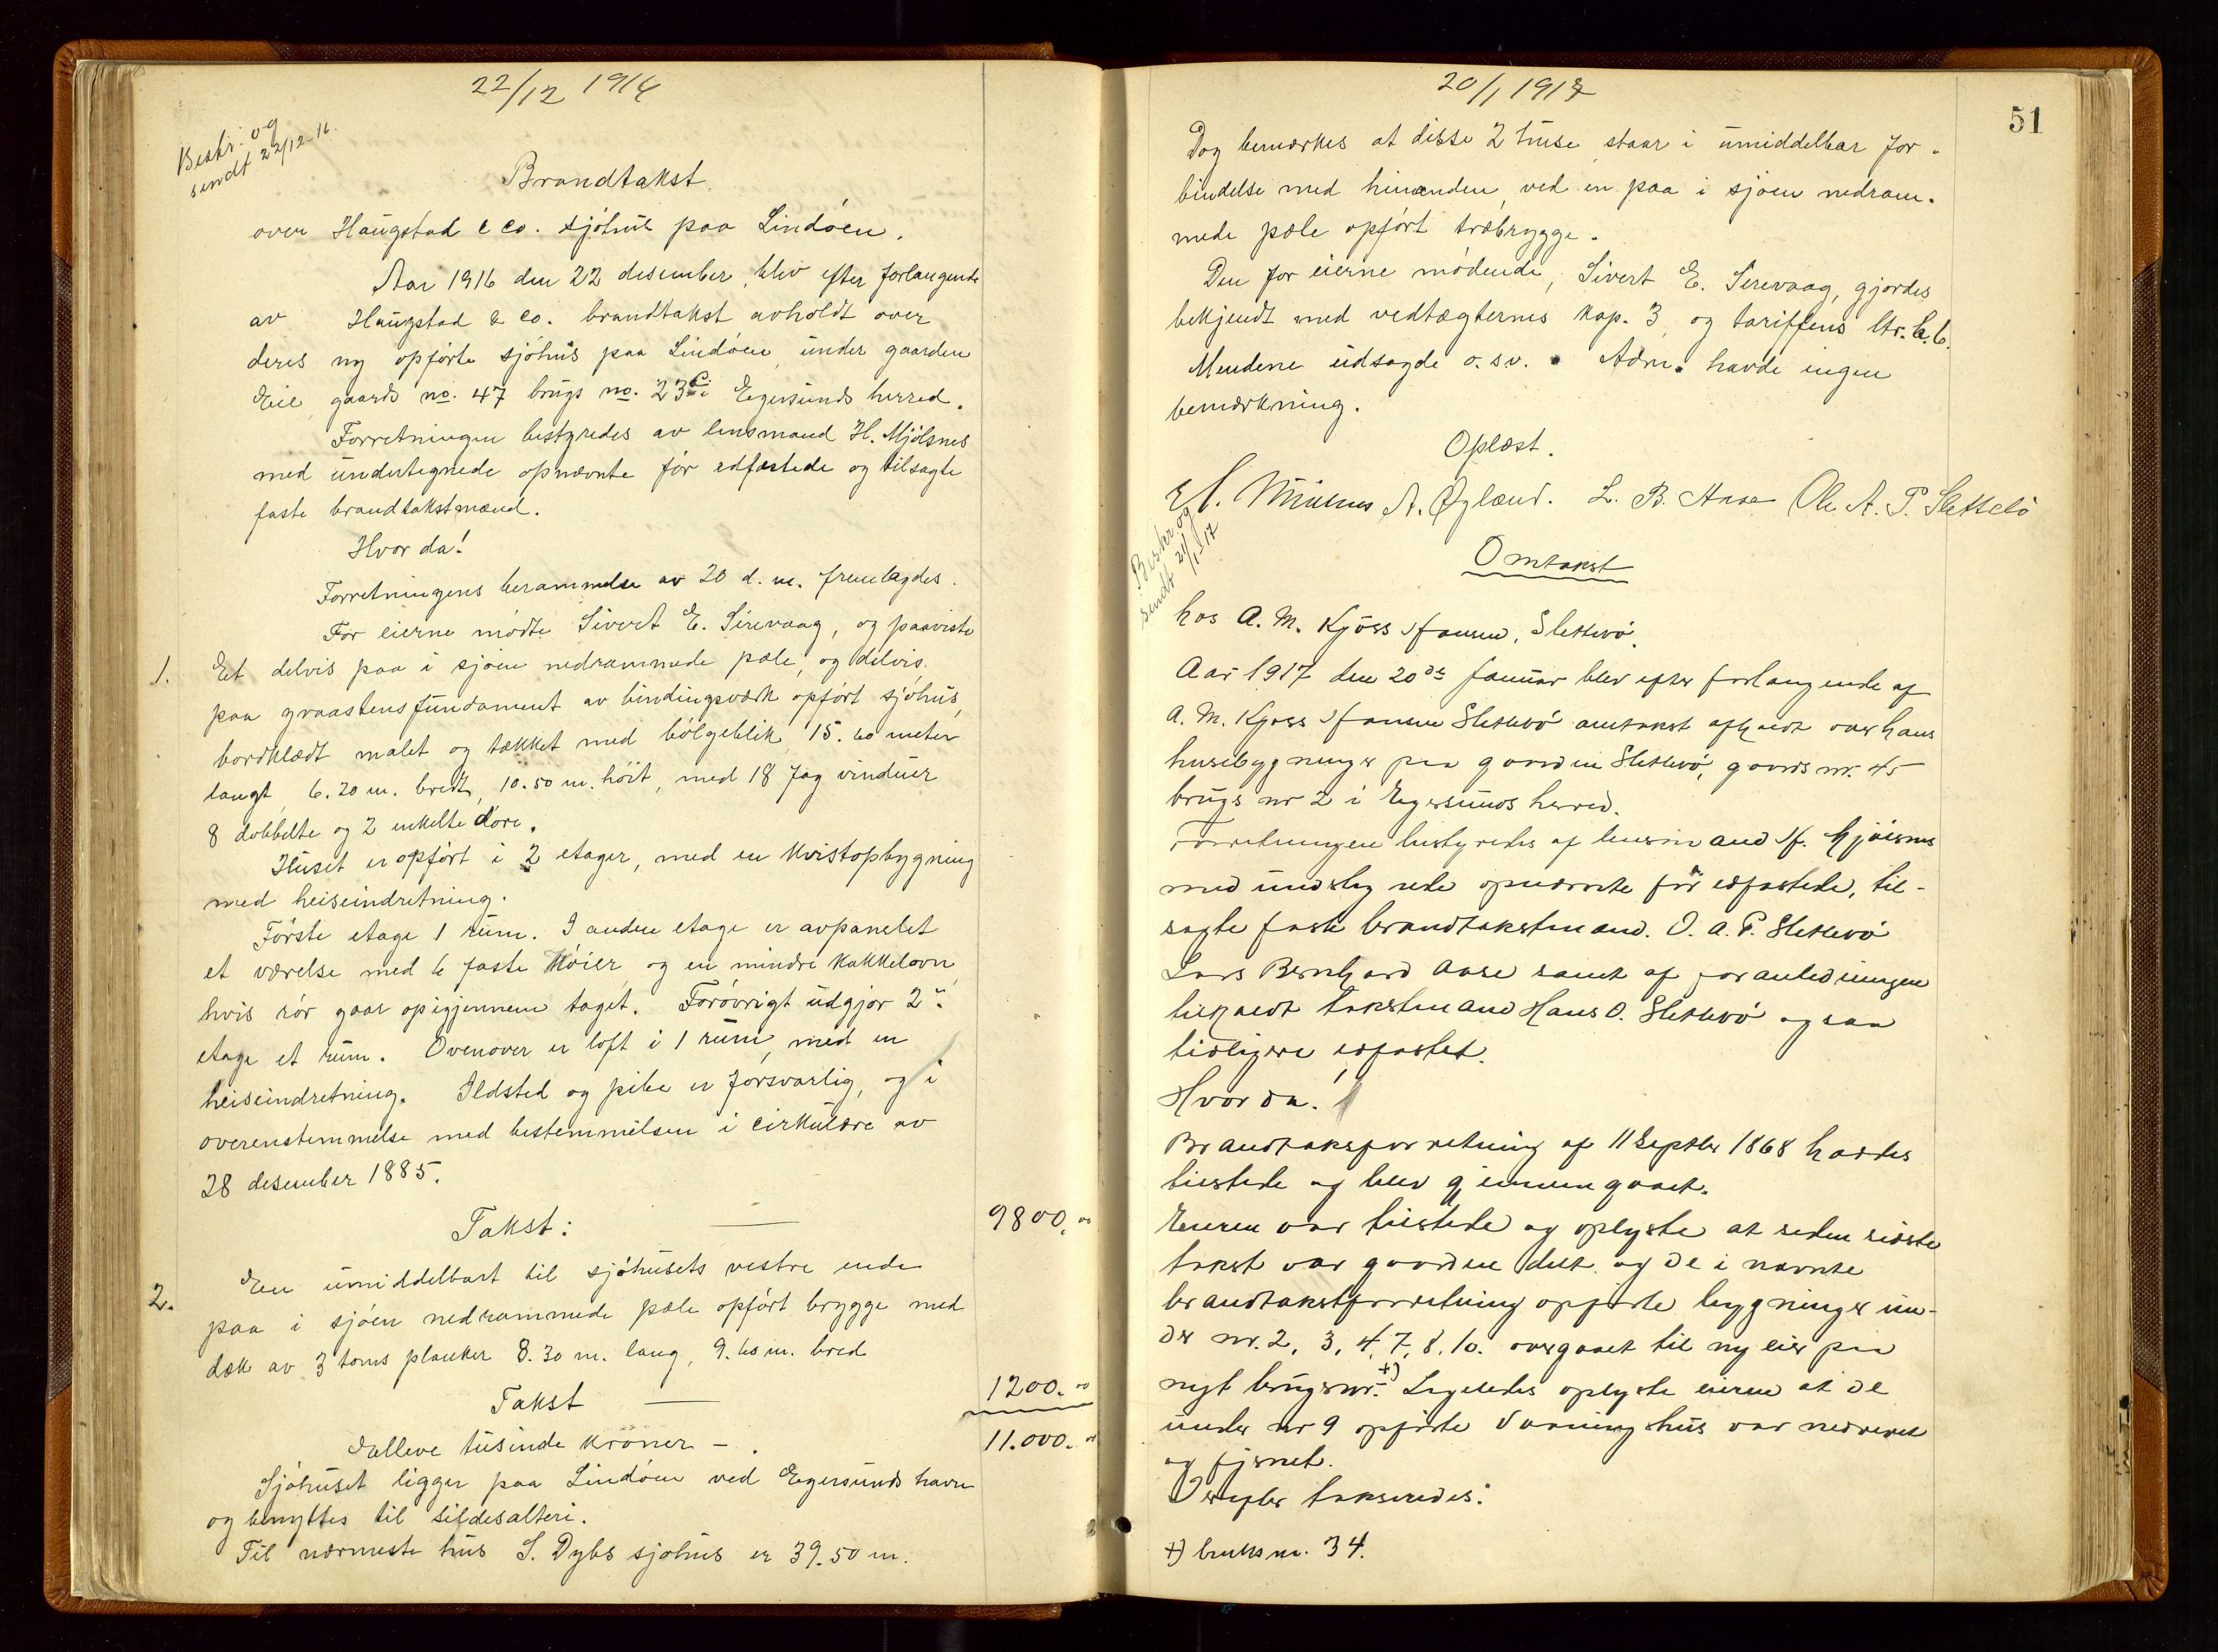 22/12 1916
Beskr. og
sendt 22/12-16.
Brandtakst
over Haugstad & co. sjøhus paa Lindøen.
Aar 1916 den 22 desember, blev efter forlangende
av Haugstad & co. brandtakst avholdt over
deres ny opførte sjøhus paa Lindøen under gaarden
Eie gaards no. 47 brugs no. 23 c i Egersunds herred.
Forretningen bestyredes av lensmand H. Mjølsnes
med undertegnede opnævnte før edfæstede og tilsagte
faste brandtakstmænd.
Hvor da!
Forretningens berammelse av 20 d. m. fremlagdes.
For eierne mødte Sivert E. Sirevaag, og paaviste
1. Et delvis paa i sjøen nedrammede pæle, og delvis
paa graastensfundament av bindingsværk opført sjøhus,
bordklædt malet og tækket med bølgeblik 15.60 meter
langt, 6.20 m. bredt, 10.50 m. høit, med 18 fag vinduer
8 dobbelte og 2 enkelte døre.
Huset er opført i 2 etager, med en kvistopbygning
med heiseindretning.
Første etage 1 rum. I anden etage er avpanelet
et værelse med 6 faste køier, og en mindre kakkelovn,
hvis rør gaar opigjennem taget. Forøvrigt udgjør 2n.
etage et rum. Ovenover er loft i 1 rum, med en
heiseindretning. Ildsted og pibe er forsvarlig, og i
overenstemmelse med bestemmelsen i cirkulære av
28 desember 1885.
Takst: — 9800.00
2. En umiddelbart til sjøhusets vestre ende
paa i sjøen nedrammede pæle opført brygge med
dæk av 3 toms planker 8.30 m. lang, 9.60 m. bred
Takst — 1200.00
Ælleve tusinde kroner — . 11.000.00
Sjøhuset ligger paa Lindøen ved Egersunds havn
og benyttes til sildesalteri.
Til nærmeste hus S. Dybs sjøhus er 39.50 m.
20/1 1917
51
Dog bemærkes at disse 2 huse staar i umiddelbar for-
bindelse med hinanden, ved en paa i sjøen nedram-
mede pæle opført træbrygge.
Den for eierne mødende, Sivert E. Sirevaag, gjordes
bekjendt med vedtægternes kap. 3 og tariffens ltr. a. b.
Mendene udsagde o. sv. Adm. havde ingen
bemærkning.
Oplæst.
H. Mjølsnes A. Øgland. L. B. Aase Ole A. P. Slettebø
Beskr. og
sendt 24/1-17
Omtakst
hos A. M. Kjøss Hansen, Slettebø.
Aar 1917 den 20de Januar blev efter forlangende af
A. M. Kjøss Hansen Slettebø omtakst afholdt over hans
husebygninger paa gaarden Slettebø, gaards nr. 45
brugs nr 2 i Egersunds herred.
Forretningen bestyredes af lensmand H. Mjølsnes
med undertegnede opnævnte før edfæstede, til-
sagte faste brandtakstmænd. O. A. P. Slettebø
Lars Bernhard Aase samt af foranledningen
tilkaldt takstmand Hans O. Slettebø ogsaa
tidligere edfæstet.
Hvor da!
Brandtaksforretning af 11 Septbr 1868 havdes
tilstede og blev gjennemgaaet.
Eieren var tilstede og oplyste at siden sidste
takst var gaarden delt og de i nævnte
brandtakstforretning opførte bygninger un-
der nr. 2, 3, 4, 7, 8, 10. overgaaet til ny eier paa
nyt brugsnr. +) Ligeledes oplyste eieren at de
under nr 9 opførte vaaninghus var nedrevet
og fjernet.
Derefter takseredes:
+) bruksnr. 34.